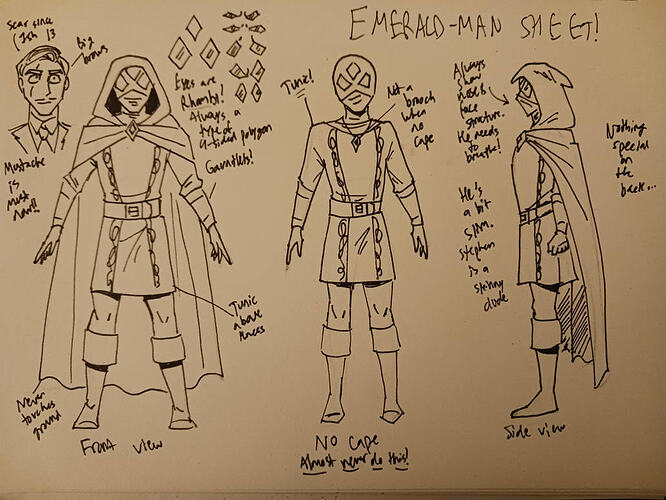 EMERALD-MAN SHEET!
Scar since
big
brows
Mustache
is
must
have!!
Eyes are
Rhombi!
Always a
type of
4-sided polygon
Gauntlets!
Tunic
above
knees
Never
touches
ground
Front view
Tunic!
Not a
brooch
when
no
cape
NO Cape
Almost never do this!
Always
show
nose &
face
structure.
He needs
to
breathe!
He's
a bit
slim.
Stephen
is a
skinny
dude
Side view
Nothing
special
on
the
back...